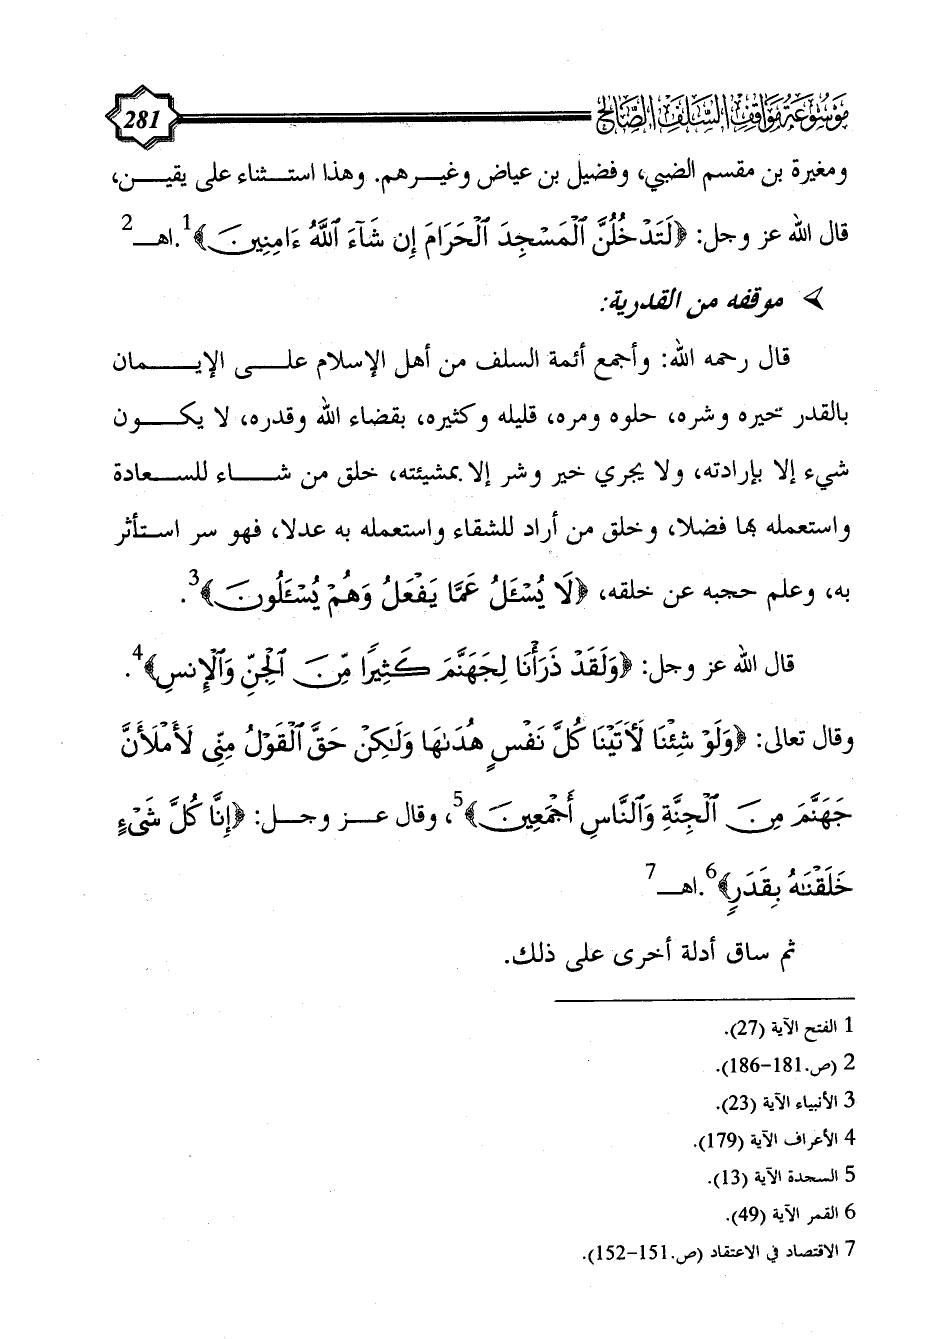 موسوعة مواقف السلف الصالح 281
ومغيرة بن مقسم الضبي، وفضيل بن عياض وغيرهم. وهذا استثناء على يقين،
قال الله عز وجل: ﴿لَتَدْخُلُنَّ ٱلْمَسْجِدَ ٱلْحَرَامَ إِن شَآءَ ٱللَّهُ ءَامِنِينَ﴾1.اهـ2
➢ موقفه من القدرية:
قال رحمه الله: وأجمع أئمة السلف من أهل الإسلام على الإيمان
بالقدر خيره وشره، حلوه ومره، قليله وكثيره، بقضاء الله وقدره، لا يكون
شيء إلا بإرادته، ولا يجري خير وشر إلا بمشيئته، خلق من شاء للسعادة
واستعمله بها فضلا، وخلق من أراد للشقاء واستعمله به عدلا، فهو سر استأثر
به، وعلم حجبه عن خلقه، ﴿لَا يُسْـَٔلُ عَمَّا يَفْعَلُ وَهُمْ يُسْـَٔلُونَ﴾3.
قال الله عز وجل: ﴿وَلَقَدْ ذَرَأْنَا لِجَهَنَّمَ كَثِيرًا مِّنَ ٱلْجِنِّ وَٱلْإِنسِ﴾4.
وقال تعالى: ﴿وَلَوْ شِئْنَا لَأَتَيْنَا كُلَّ نَفْسٍ هُدَىٰهَا وَلَٰكِنْ حَقَّ ٱلْقَوْلُ مِنِّى لَأَمْلَأَنَّ
جَهَنَّمَ مِنَ ٱلْجِنَّةِ وَٱلنَّاسِ أَجْمَعِينَ﴾5، وقال عز وجل: ﴿إِنَّا كُلَّ شَىْءٍ
خَلَقْنَٰهُ بِقَدَرٍ﴾6.اهـ7
ثم ساق أدلة أخرى على ذلك.
1 الفتح الآية (27).
2 (ص.181-186).
3 الأنبياء الآية (23).
4 الأعراف الآية (179).
5 السجدة الآية (13).
6 القمر الآية (49).
7 الاقتصاد في الاعتقاد (ص.151-152).